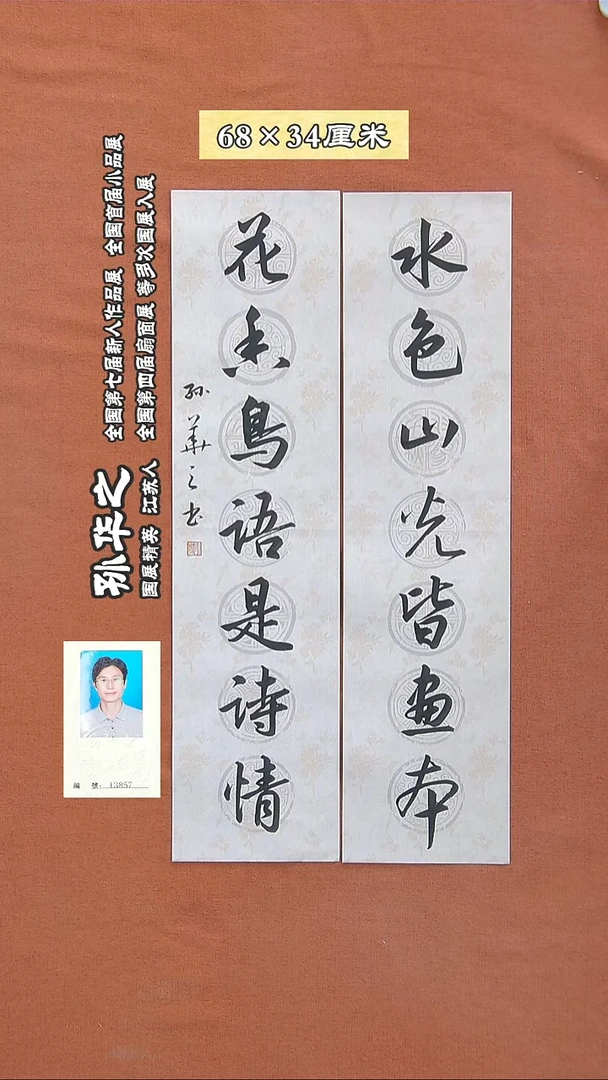 68×34厘米
水色山光皆画本
花香鸟语是诗情
孙华之书
孙华之
国展精英 江苏人
全国第七届新人作品展 全国首届小品展
全国第四届扇面展 等多次国展入展
编 號: 13857